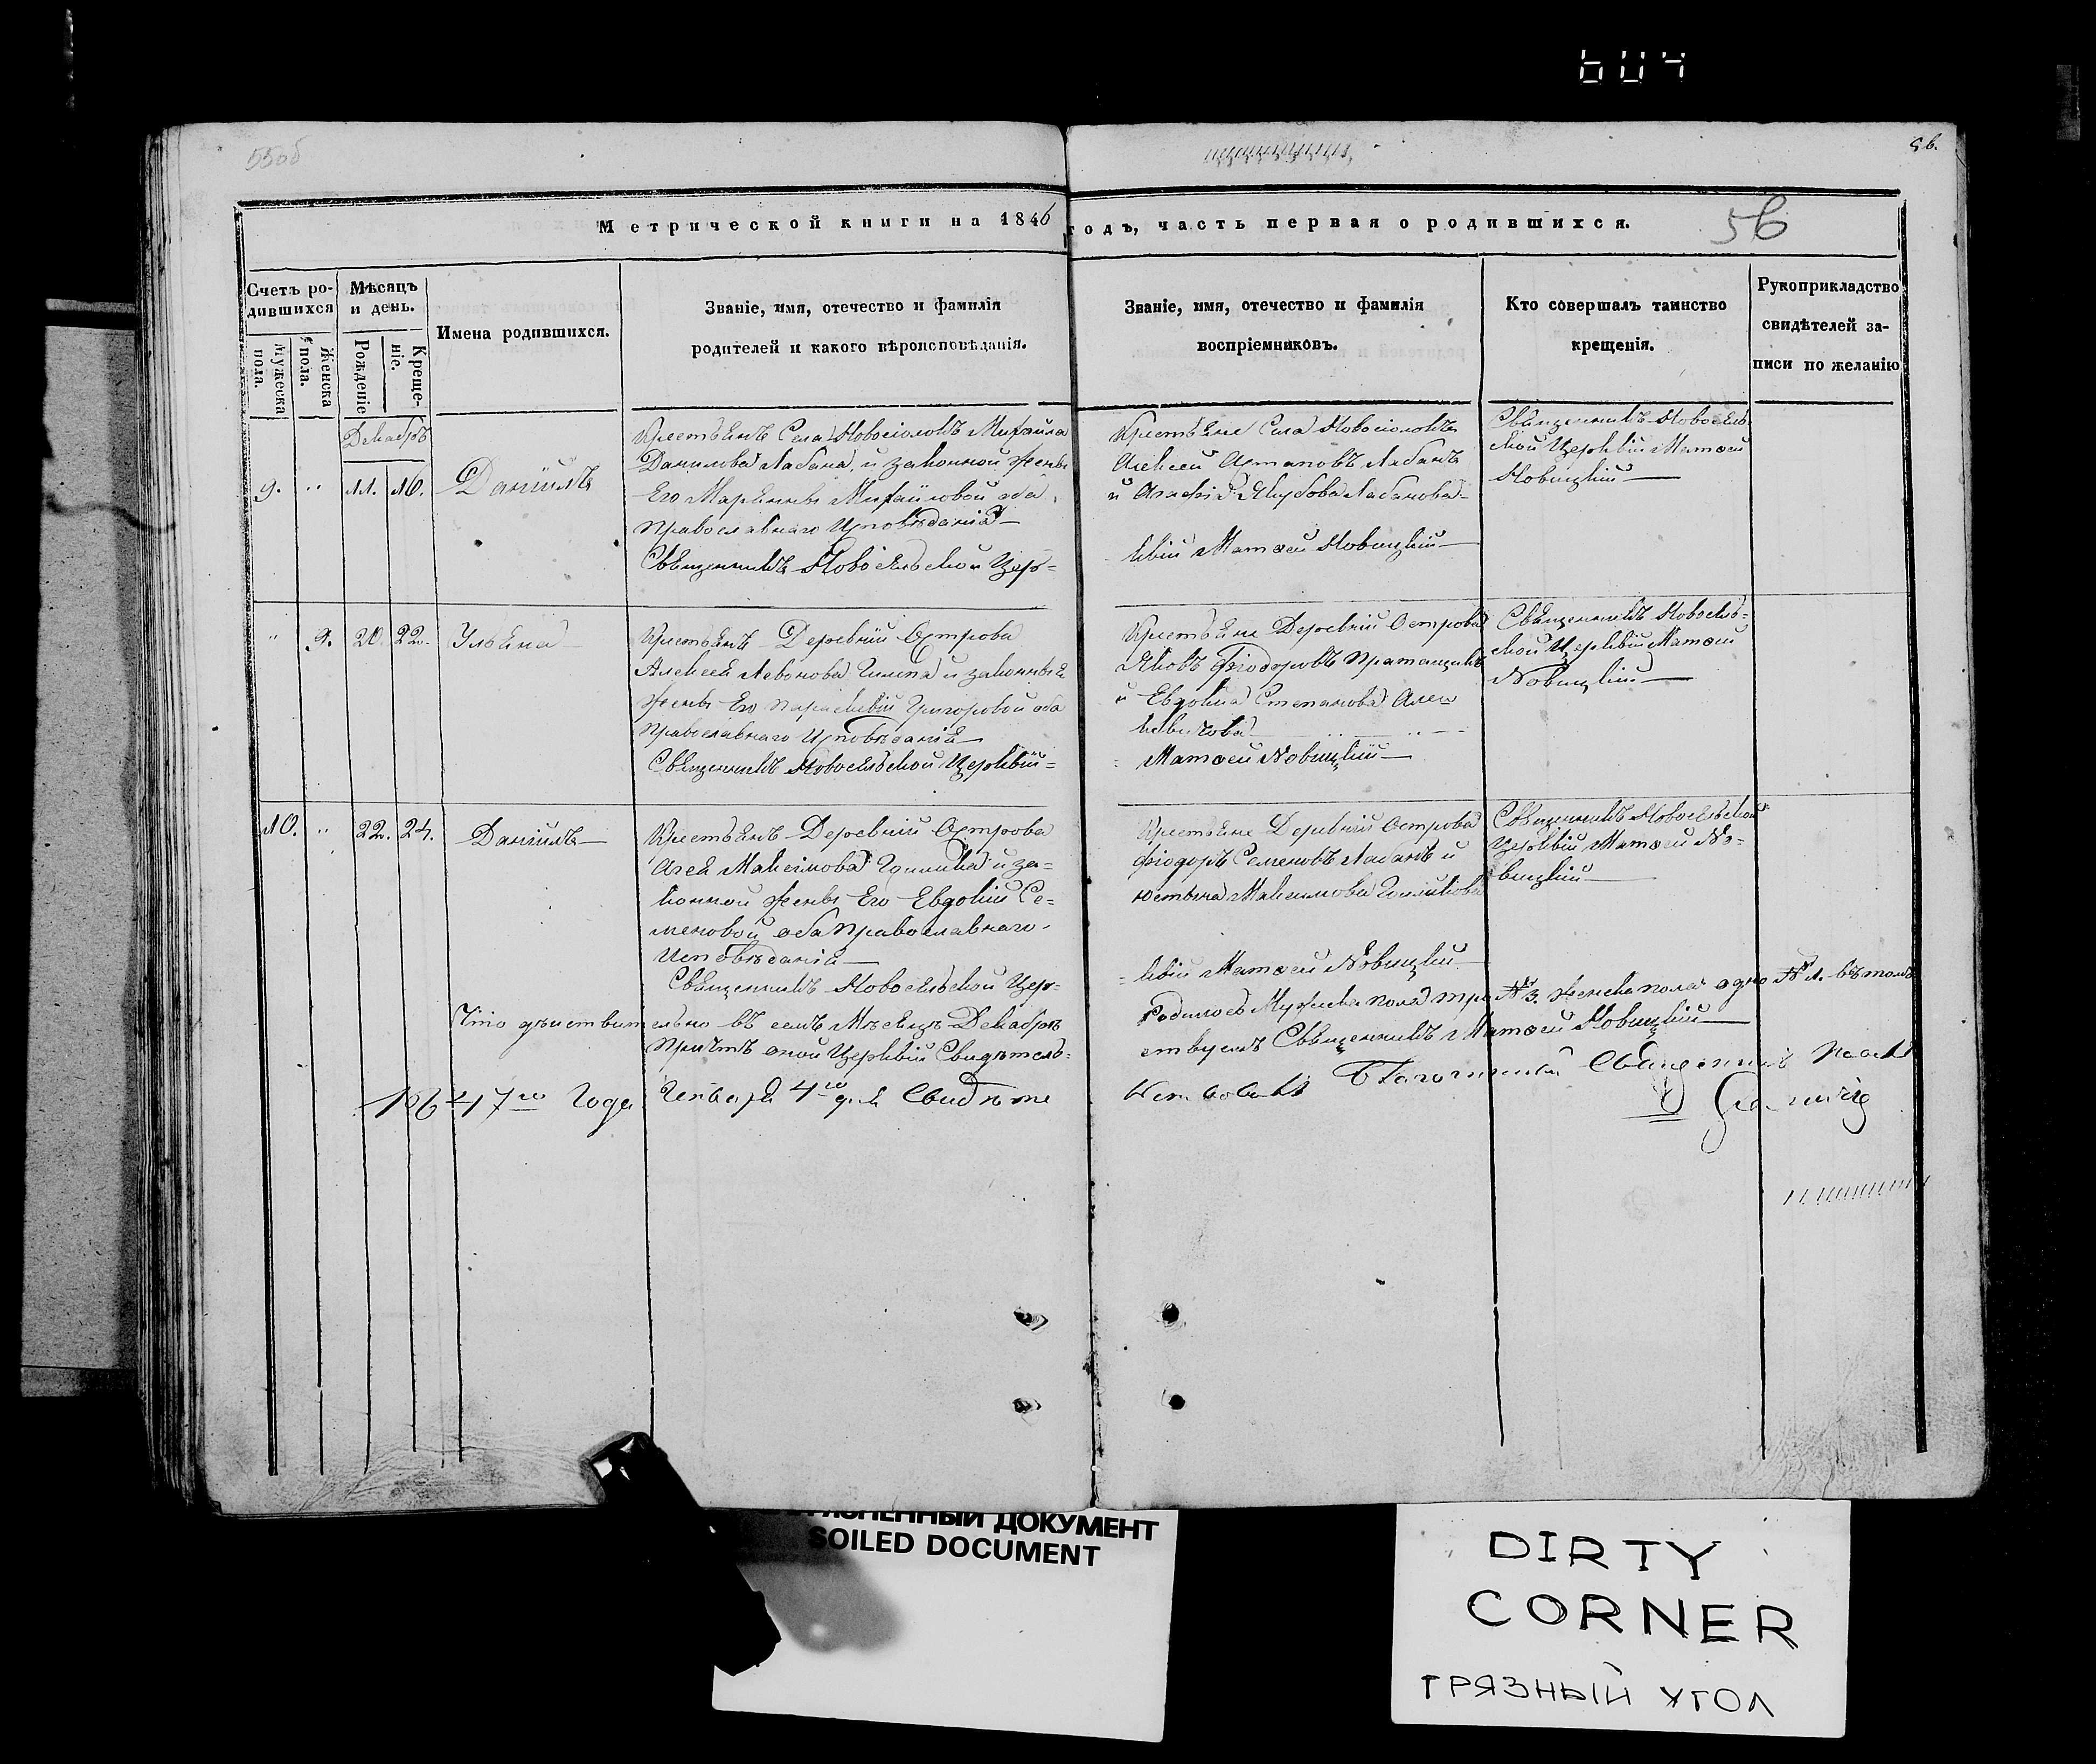 604
55об
56.
Метрической книги на 1846 годъ, часть первая о родившихся.
56
Счетъ родившихся
Мѣсяцъ и день.
Имена родившихся.
Званіе, имя, отечество и фамилія
родителей и какого вѣроисповѣданія.
Званіе, имя, отечество и фамилія
воспріемниковъ.
Кто совершалъ таинство
крещенія.
Рукоприкладство
свидѣтелей за-
писи по желанію
Мужеска пола.
Женска пола.
Рожденіе
Креще-
ніе.
Декабрь
9. " 11. 16. Даніилъ
Крестьянъ Села Новосіолокъ Михайла
Данилова Лабана, и законной жены
Его Марьянны Михайловой оба
Православнаго Исповѣданія
Священникъ Новосельской Цер=
Крестьяне Села Новосіолокъ
Алексей Астаповъ Лабанъ
и Агафія Якубова Лабанова
квіи Матѳей Новицкій
Священникъ Новосель
ской Церквіи Матѳей
Новицкій
" 9. 20. 22. Ульяна
Крестьянъ Деревніи Острова
Алексея Левонова и законныя
жены Его Параскевіи Григоровой оба
Православнаго Исповѣданія
Священникъ Новосельской Церквіи=
Крестьяне Деревніи Острова
Яковъ Ѳіодоровъ
и Евдокіа Степанова
Матѳей Новицкій
Священникъ Новосель=
ской Церквіи Матѳей
Новицкій
10. " 22. 24. Даніилъ
Крестьянъ Деревніи Острова
Максимова и за=
конной жены Его Евдокіи Се=
меновой оба Православнаго
Исповѣданія
Священникъ Новосельской Цер=
Крестьяне Деревніи Острова
Ѳіодоръ Семеновъ Лабанъ и
Юстына Максимова
=квіи Матѳей Новицкій
Священникъ Новосельской
Церквіи Матѳей Но=
вицкій
Что дѣйствительно въ семъ Мѣсяцѣ Декабрѣ Родилось Мужеска пола три № 3. женска пола одно № 1. въ томъ
Причтъ оной Церквіи Свидѣтель=ствуемъ Священникъ Матѳей Новицкій
1847го Года Генваря 4го дня Свидѣте
Благочинный Священникъ
ЗАГРЯЗНЕННЫЙ ДОКУМЕНТ
SOILED DOCUMENT
DIRTY
CORNER
ГРЯЗНЫЙ УГОЛ